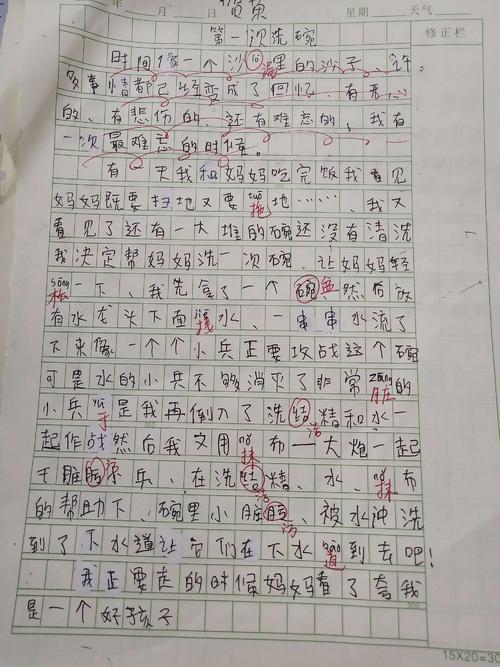 年 月 日 星期 天气
修正栏
第一次洗碗
时间像一个沙 里的沙子、许
多事情都已经变成了回忆、有
的、有悲伤的、还有难忘的、我有
一次最难忘的时候。
有一天我和妈妈吃完饭我看见
妈妈既要扫地又要tuō拖地……、我又
看见了还有一大堆的碗还没有清洗
我决定帮妈妈洗一次碗、让妈妈轻
sōng松一下、我先拿了一个碗 然后放
有水龙头下面jiē接水、一串串水流了
下来像一个个小兵正要攻战这个碗
可是水的小兵不够消灭了非常zāng脏的
小兵 于是我再倒入了洗结洁精和水一
起作战然后我又用 抹布一大炮一起
干脏 兵、在洗 精、水、 抹布
的帮助下、碗里小脏 、被水冲洗
到了下水道让它们在下水dào道到去吧!
我正要走的时候妈妈看了夸我
是一个好孩子
15X20=30